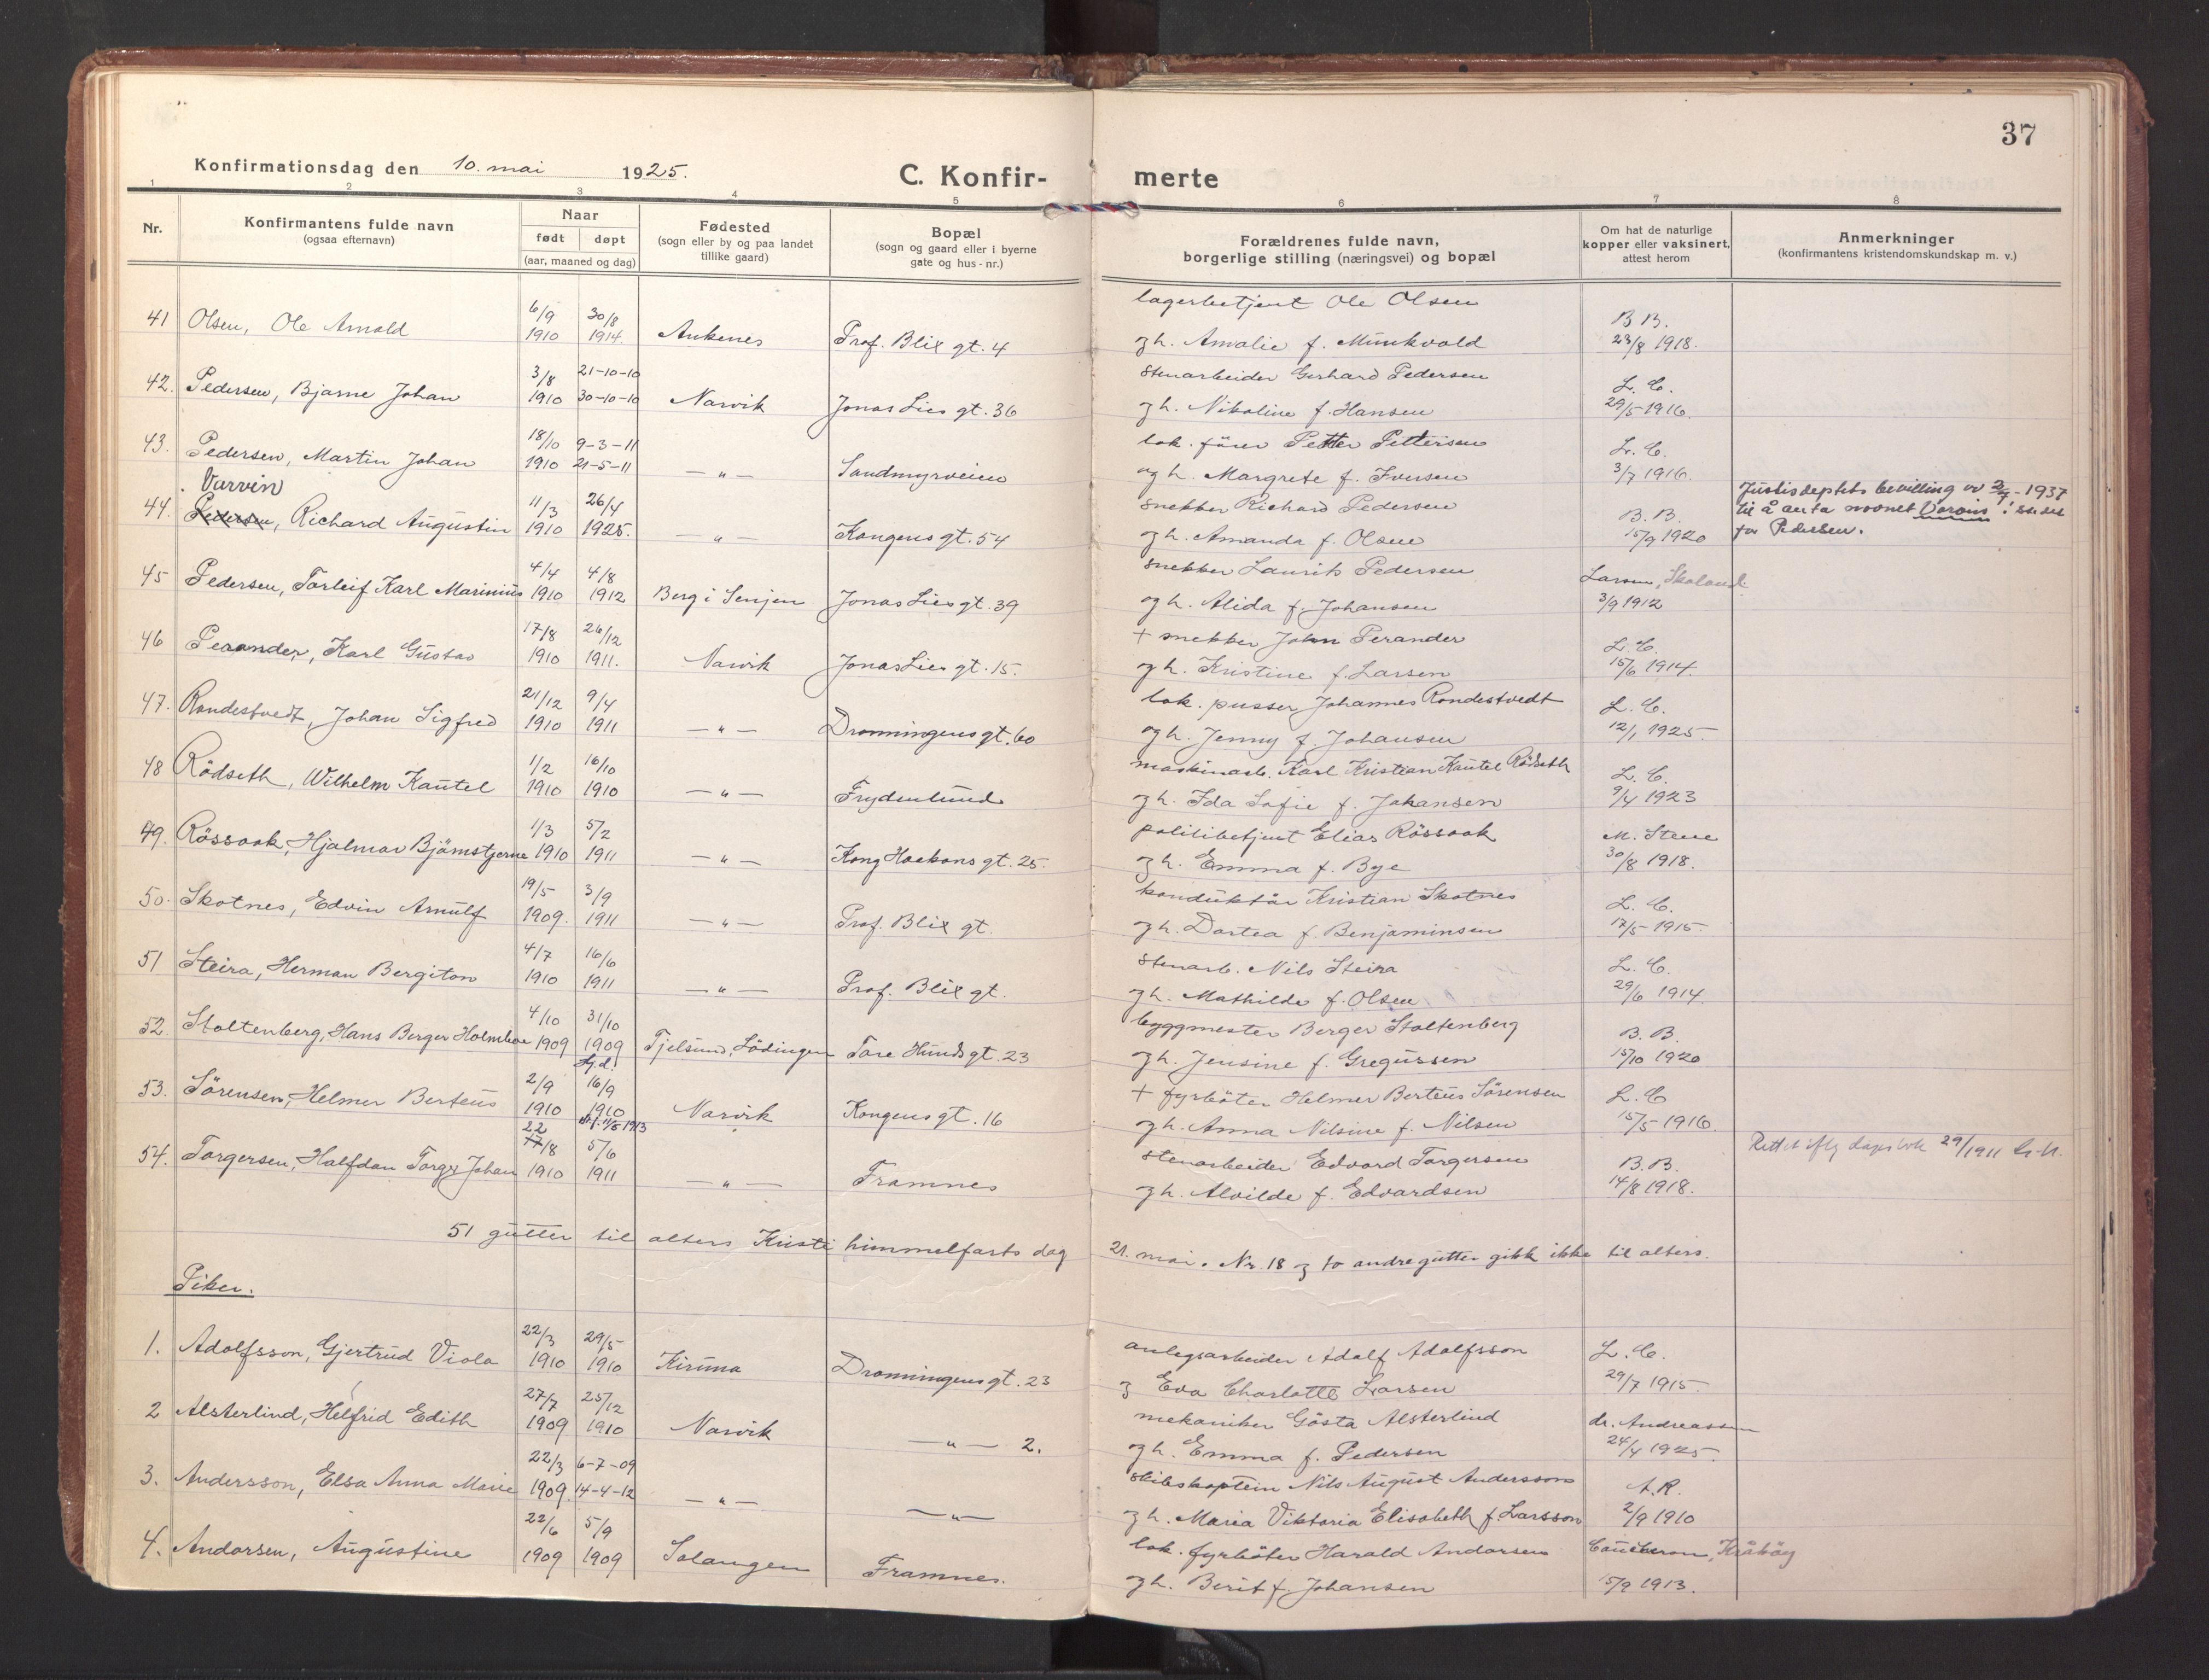 37
Konfirmationsdag den 10. mai 1925.
C. Konfir-
merte
1 2 3 4 5 6 7 8
Nr.
Konfirmantens fulde navn
(ogsaa efternavn)
Naar
født døpt
(aar, maaned og dag)
Fødested
(sogn eller by og paa landet
tillike gaard)
Bopæl
(sogn og gaard eller i byerne
gate og hus-nr.)
Forældrenes fulde navn,
borgerlige stilling (næringsvei) og bopæl
Om hat de naturlige
kopper eller vaksinert,
attest herom
Anmerkninger
(konfirmantens kristendomskundskap m. v.)
lagerbetjent Ole Olsen
41 Olsen, Ole Arnold 6/9 1910 30/8 1914. Ankenes Prof. Blix gt. 4
og h. Amalie f. Munkvold
B.B. 23/8 1918.
stenarbeider Gerhard Pedersen
42. Pedersen, Bjarne Johan 3/8 1910 21-10-10 30-10-10 Narvik Jonas Lies gt. 36
og h. Nikoline f. Hansen
L. C. 29/5 1916.
lok. fører Petter Pettersen
43. Pedersen, Martin Johan 18/10 1910 9-3-11 21-5-11 — " — Sandmyrveien
og h. Margrete f. Iversen
L. C. 3/7 1916.
Varvin
snekker Richard Pedersen
44. Pedersen, Richard Augustin 11/3 1910 26/4 1925. — " — Kongens gt. 54
og h. Amanda f. Olsen
B. B. 15/9 1920
Justisdeptets bevilling av 2/7-1937
til å anta navnet Varvin i stedet
for Pedersen.
snekker Laurits Pedersen
45 Pedersen, Torleif Karl Marinius 4/4 1910 4/8 1912 Berg i Senjen Jonas Lies gt. 39
og h. Alida f. Johansen
Larsen, Skaland 3/9 1912
+ snekker John Perander
46 Perander, Karl Gustav 17/8 1910 26/12 1911. Narvik Jonas Lies gt. 15.
og h. Kristine f. Larsen
L. C. 15/6 1914.
lok. pusser Johannes Rondestvedt
47. Rondestvedt, Johan Sigfred 21/12 1910 9/4 1911 — " — Dronningens gt. 60
og h. Jenny f. Johansen
L. C. 12/1 1925.
maskinarb. Karl Kristian Kautel Rödseth
48 Rödseth, Wilhelm Kautel 1/2 1910 16/10 1910 — " — Frydenlund
og h. Ida Sofie f. Johansen
L. C. 9/4 1923
politibetjent Elias Rössaak
49. Rössaak, Hjalmar Björnstjerne 1/3 1910 5/2 1911 — " — Kong Haakons gt. 25.
og h. Emma f. Bye
M. Stene 30/8 1918.
konduktör Kristian Skotnes
50. Skotnes, Edvin Arnulf 19/5 1909. 3/9 1911 — " — Prof. Blix gt.
og h. Dortea f. Benjaminsen
L. C. 17/5 1915.
stenarb. Nils Steira
51 Steira, Herman Bergiton 4/7 1910 16/6 1911 — " — Prof. Blix gt.
og h. Mathilde f. Olsen
L. C. 29/6 1914.
byggmester Berger Stoltenberg
52. Stoltenberg, Hans Berger Holmboe 4/10 1909 31/10 1909 Tjelsund, Lödingen Tore Hunds gt. 23
og h. Jensine f. Gregussen
B. B. 15/10 1920
+ fyrböter Helmer Berteus Sörensen
53. Sörensen, Helmer Berteus 2/9 1910 Hj.d. 16/9 1910 11/5 1913 Narvik Kongens gt. 16
og h. Anna Nilsine f. Nilsen
L. C 15/5 1916.
stenarbeider Edvard Torgersen
54. Torgersen, Halfdan Torgy Johan 22 17/8 1910 5/6 1911 — " — Framnes
og h. Alvilde f. Edvardsen
B. B. 14/8 1918.
Rettet iflg dagsbok 29/1911
51 gutter til alters Kristi himmelfarts dag 21. mai. Nr. 18 og to andre gutter gikk ikke til alters.
Piker.
anlegsarbeider Adolf Adolfsson
1. Adolfsson, Gjertrud Viola 22/3 1910 29/5 1910 Kiruna Dronningens gt. 23
og Eva Charlotte Larsen
L. C. 29/7 1915.
mekaniker Gösta Alsterlind
2 Alsterlind, Helfrid Edith 27/7 1909 25/12 1910 Narvik — " — 2.
og h. Emma f. Pedersen
dr. Andreassen 24/4 1925.
skibskaptein Nils August Andersson
3. Andersson, Elsa Anna Marie 22/3 1909. 6-7-09 14-4-12 — " — — " —
og h. Maria Viktoria Elisabeth f. Larsson
A.R. 2/9 1910
lok. fyrböter Harald Andorsen
4. Andorsen, Augustine 22/6 1909 5/9 1909 Salangen Framnes.
og h. Berit f. Johansen
Kråkög 15/9 1913.